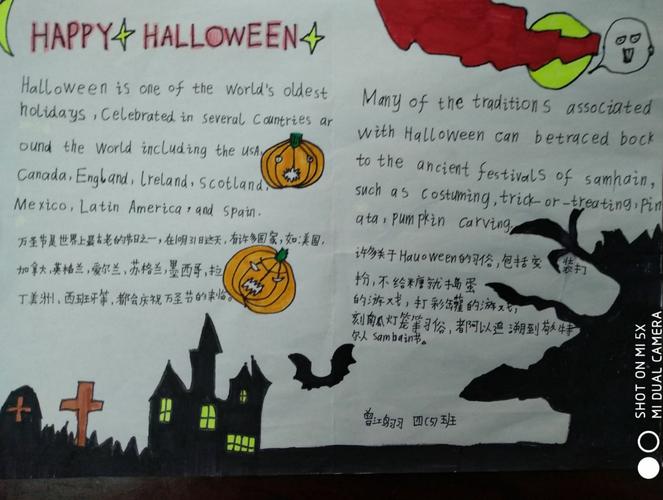 HAPPY HALLOWEEN
Halloween is one of the world's oldest
holidays , Celebrated in several Countries ar
ound the world including the USA,
Canada, England, lreland, Scotland,
Mexico, Latin America , and Spain.
万圣节是世界上最古老的节日之一,在10月31日这天,有许多国家,如:美国,
加拿大,英格兰,爱尔兰,苏格兰,墨西哥,拉
丁美洲,西班牙等,都会庆祝万圣节的来临。
Many of the traditions associated
with Halloween can betraced back
to the ancient festivals of samhain,
such as costuming, trick-or-treating, pin
ata, pumpkin carving.
许多关于Hauoween的习俗,包括变装打
扮,不给糖就捣蛋
的游戏,打彩罐的游戏,
刻南瓜灯笼等习俗,都可以追溯到
尔人sambain节。
四(5)班
SHOT ON MI 5X
MI DUAL CAMERA